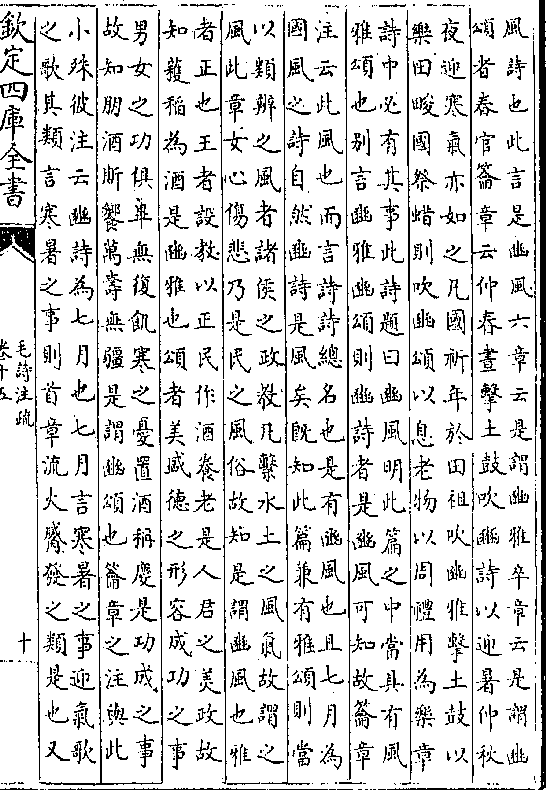 風詩也此言是豳風六章云是謂豳雅卒章云是謂豳
頌者春官籥章云仲春晝擊土鼓吹豳詩以迎暑仲秋
夜迎寒氣亦如之凡國祈年於田祖吹豳雅擊土鼓以
樂田畯國祭蜡則吹豳頌以息老物以周禮用為樂章
詩中必有其事此詩題曰豳風明此篇之中當具有風
雅頌也别言豳雅豳頌則豳詩者是豳風可知故籥章
注云此風也而言詩詩總名也是有豳風也且七月為
國風之詩自然豳詩是風矣既知此篇兼有雅頌則當
以類辨之風者諸侯之政教凡繫水土之風氣故謂之
風此章女心傷悲乃是民之風俗故知是謂豳風也雅
者正也王者設教以正民作酒養老是人君之美政故
知穫稻為酒是豳雅也頌者美盛德之形容成功之事
男女之功俱畢無復飢寒之憂置酒稱慶是功成之事
故知朋酒斯饗萬壽無疆是謂豳頌也籥章之注與此
小殊彼注云豳詩為七月也七月言寒暑之事迎氣歌
之歌其類言寒暑之事則首章流火觱發之類是也又
欽定四庫全書
毛詩注疏
卷十五
十